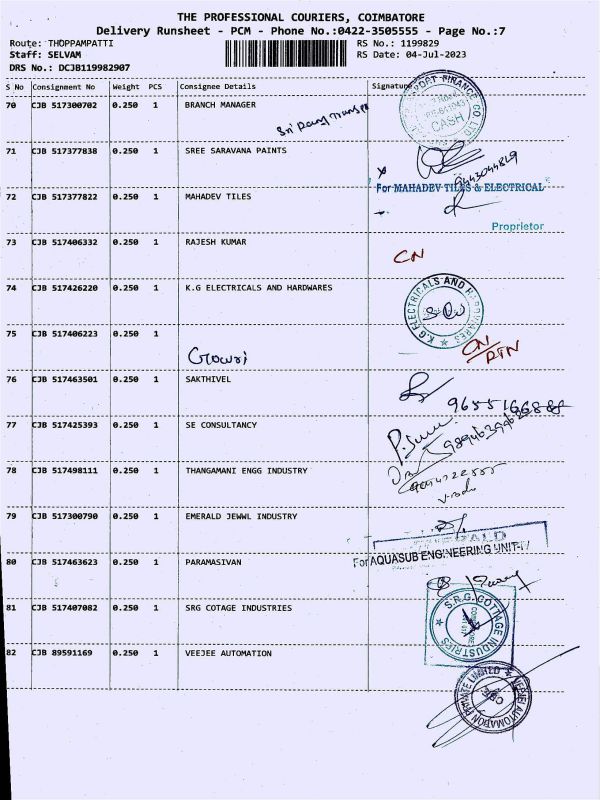 THE PROFESSIONAL COURIERS, COIMBATORE
Delivery Runsheet - PCM - Phone No.:0422-3505555 - Page No.:7
Route: THOPPAMPATTI RS No.: 1199829
Staff: SELVAM RS Date: 04-Jul-2023
DRS No.: DCJB119982907
S No Consignment No Weight PCS Consignee Details Signature
70 CJB 517300702 0.250 1 BRANCH MANAGER
CASH
71 CJB 517377838 0.250 1 SREE SARAVANA PAINTS
9443044819
72 CJB 517377822 0.250 1 MAHADEV TILES
For MAHADEV TILES & ELECTRICAL
Proprietor
73 CJB 517406332 0.250 1 RAJESH KUMAR
CN
74 CJB 517426220 0.250 1 K.G ELECTRICALS AND HARDWARES
K.G ELECTRICALS AND HARDWARES
75 CJB 517406223 0.250 1
Gowri
CN/RTN
76 CJB 517463501 0.250 1 SAKTHIVEL
77 CJB 517425393 0.250 1 SE CONSULTANCY
78 CJB 517498111 0.250 1 THANGAMANI ENGG INDUSTRY
79 CJB 517300790 0.250 1 EMERALD JEWWL INDUSTRY
80 CJB 517463623 0.250 1 PARAMASIVAN
For AQUASUB ENGINEERING UNIT-
81 CJB 517407082 0.250 1 SRG COTAGE INDUSTRIES
S.R.G. COTTAGE INDUSTRIES
82 CJB 89591169 0.250 1 VEEJEE AUTOMATION
AUTOMATION PRIVATE LIMITED
CBE